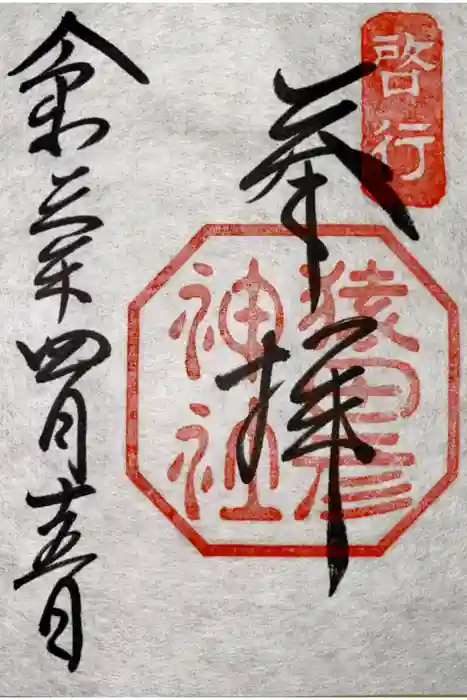 啓行
奉拝
猿田彦
神社
令和三年四月十五日